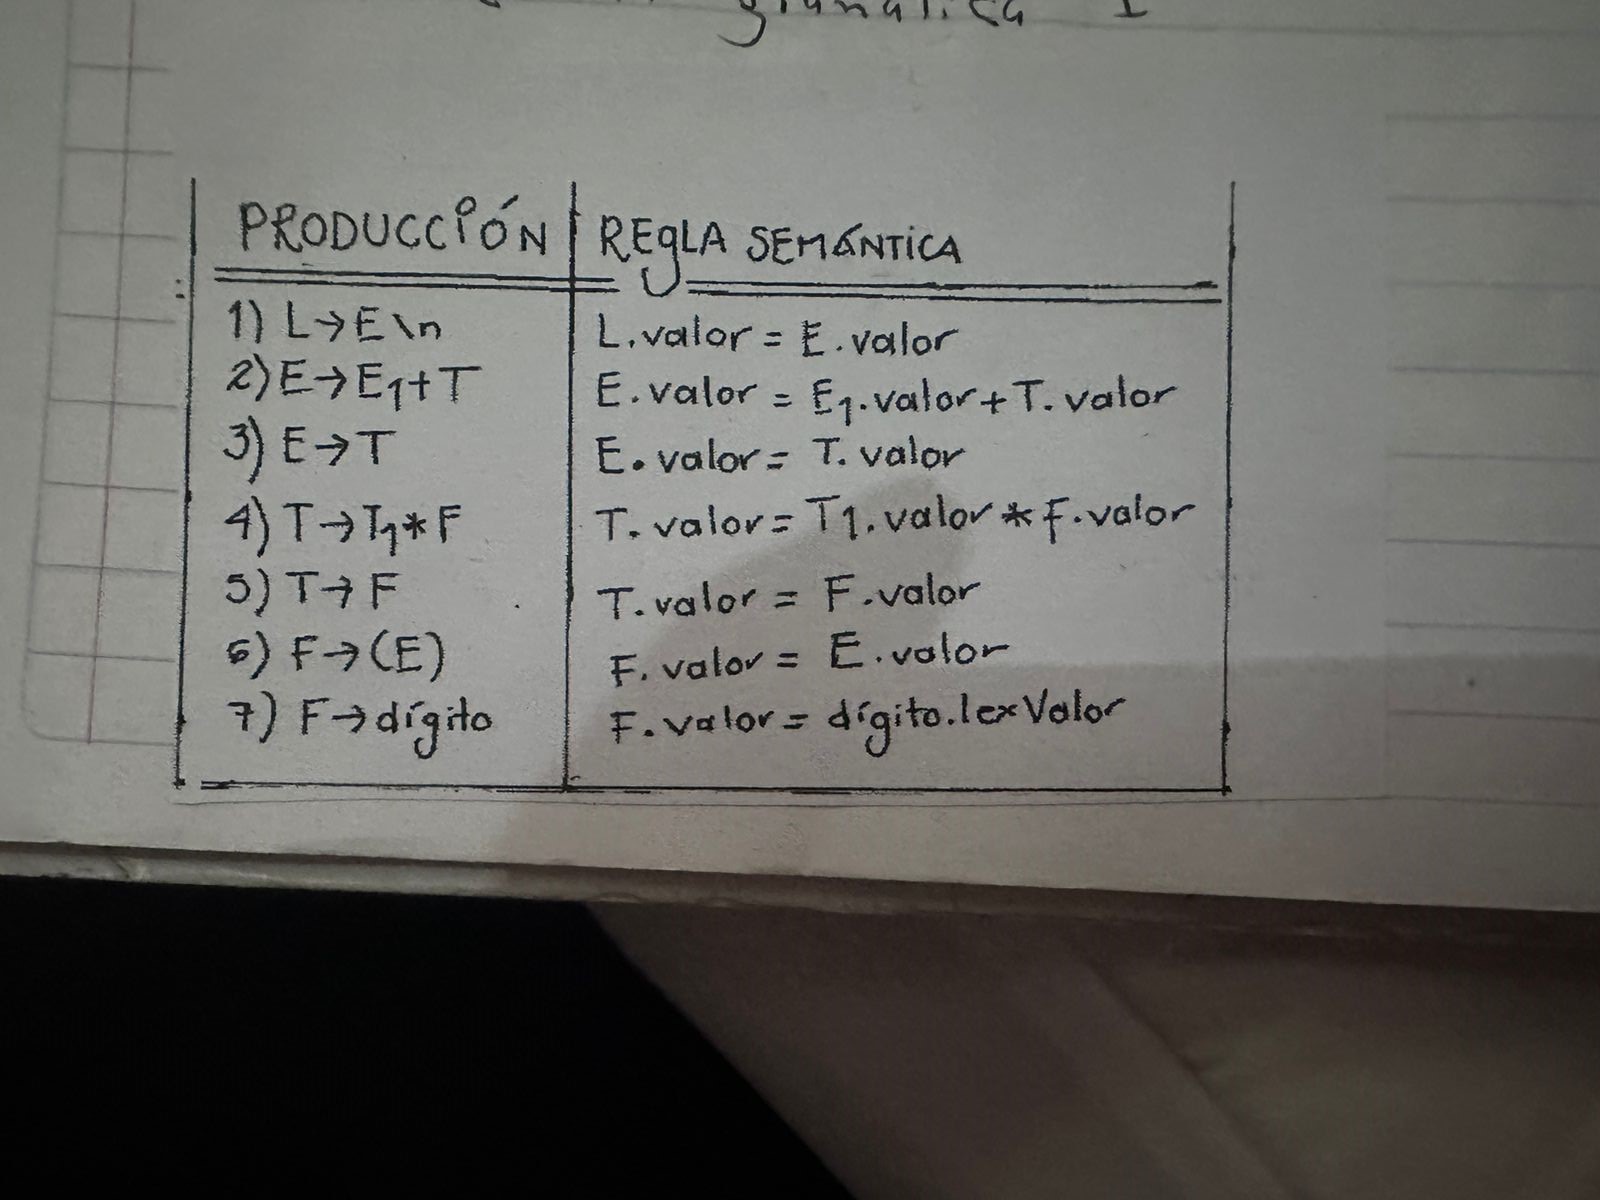 gramática 1
PRODUCCIÓN REGLA SEMÁNTICA
1) L→E\n L.valor = E.valor
2) E→E₁+T E.valor = E₁.valor+T.valor
3) E→T E.valor = T.valor
4) T→T₁*F T.valor = T1.valor*F.valor
5) T→F T.valor = F.valor
6) F→(E) F.valor = E.valor
7) F→dígito F.valor = dígito.lexValor